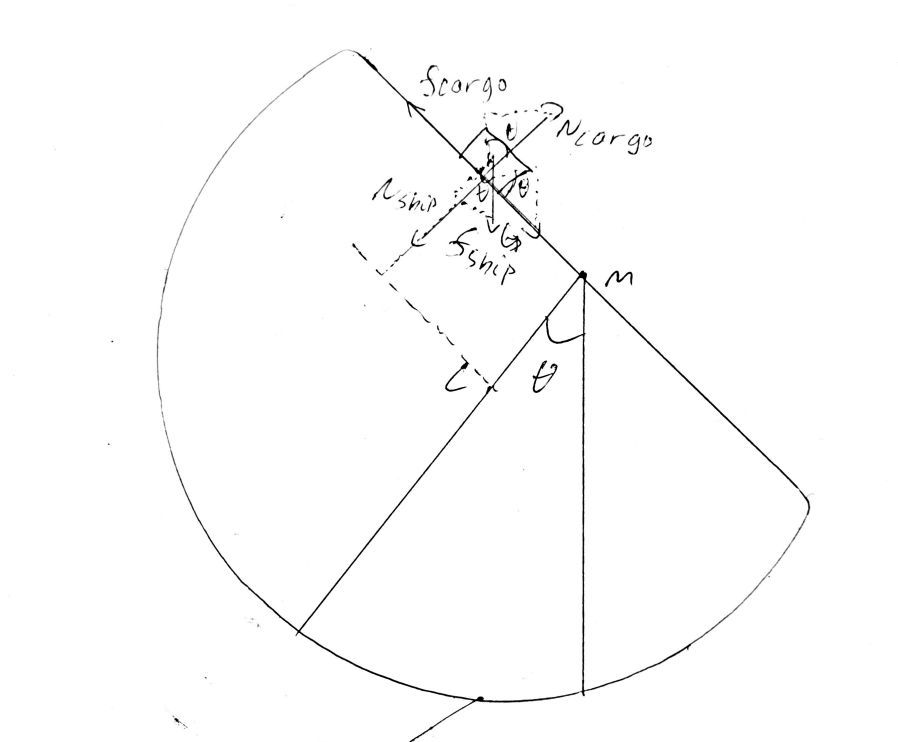 fcargo
θ
Ncargo
θ
θ
Nship
G
fship
M
C
θ